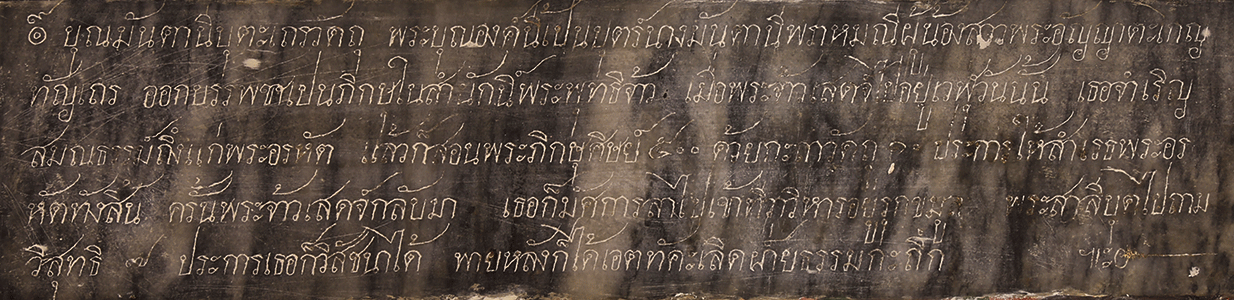 ๏ บุณมันตานีบุตะเถรวัตถุ พระบุณองค์นี้เปนบุตร์นางมันตานีพราหมณีผู้น้องสาวพระอัญญาตะโกญ
ทัญเถร ออกบรรพชชเปนภิกษุในสำนักนิ์พระพุทธิจ้าว เมื่อพระจ้าวเสดจ์ไปอยู่เวฬุวันนั้น เธอจำเริญ
สมณธรรม์ถึงแก่พระอรหัต แล้วก็สอนพระภิกษุศิษย์ ๕๐๐ ด้วยกะถาวัตถุ ๑๐ ประการให้สำเรธพระอร
หัตทังสิ้น ครั้นพระจ้าวเสดจ์กลับมา เธอก็มัศการลาไปเข้าที่ วิหารอยู่ พระสาริบุตไปถาม
วิสุทธิ ๗ ประการเธอก็วิสัชนาได้ พายหลังก็ได้เอตทัคะเลิดฝ่ายธรรมกะถึก